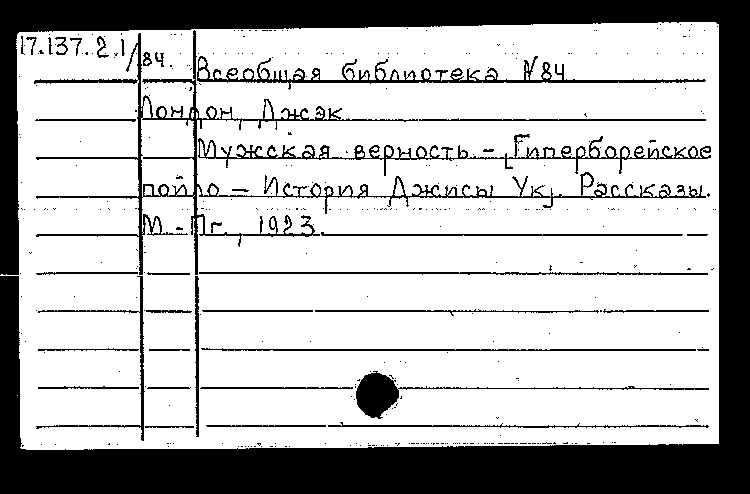 17.137.2.1/84. Всеобщая библиотека №84
Лондон, Джэк
Мужская верность - [Гиперборейское
пойло - История Джисы Ук]. Рассказы.
М.-Пг., 1923.